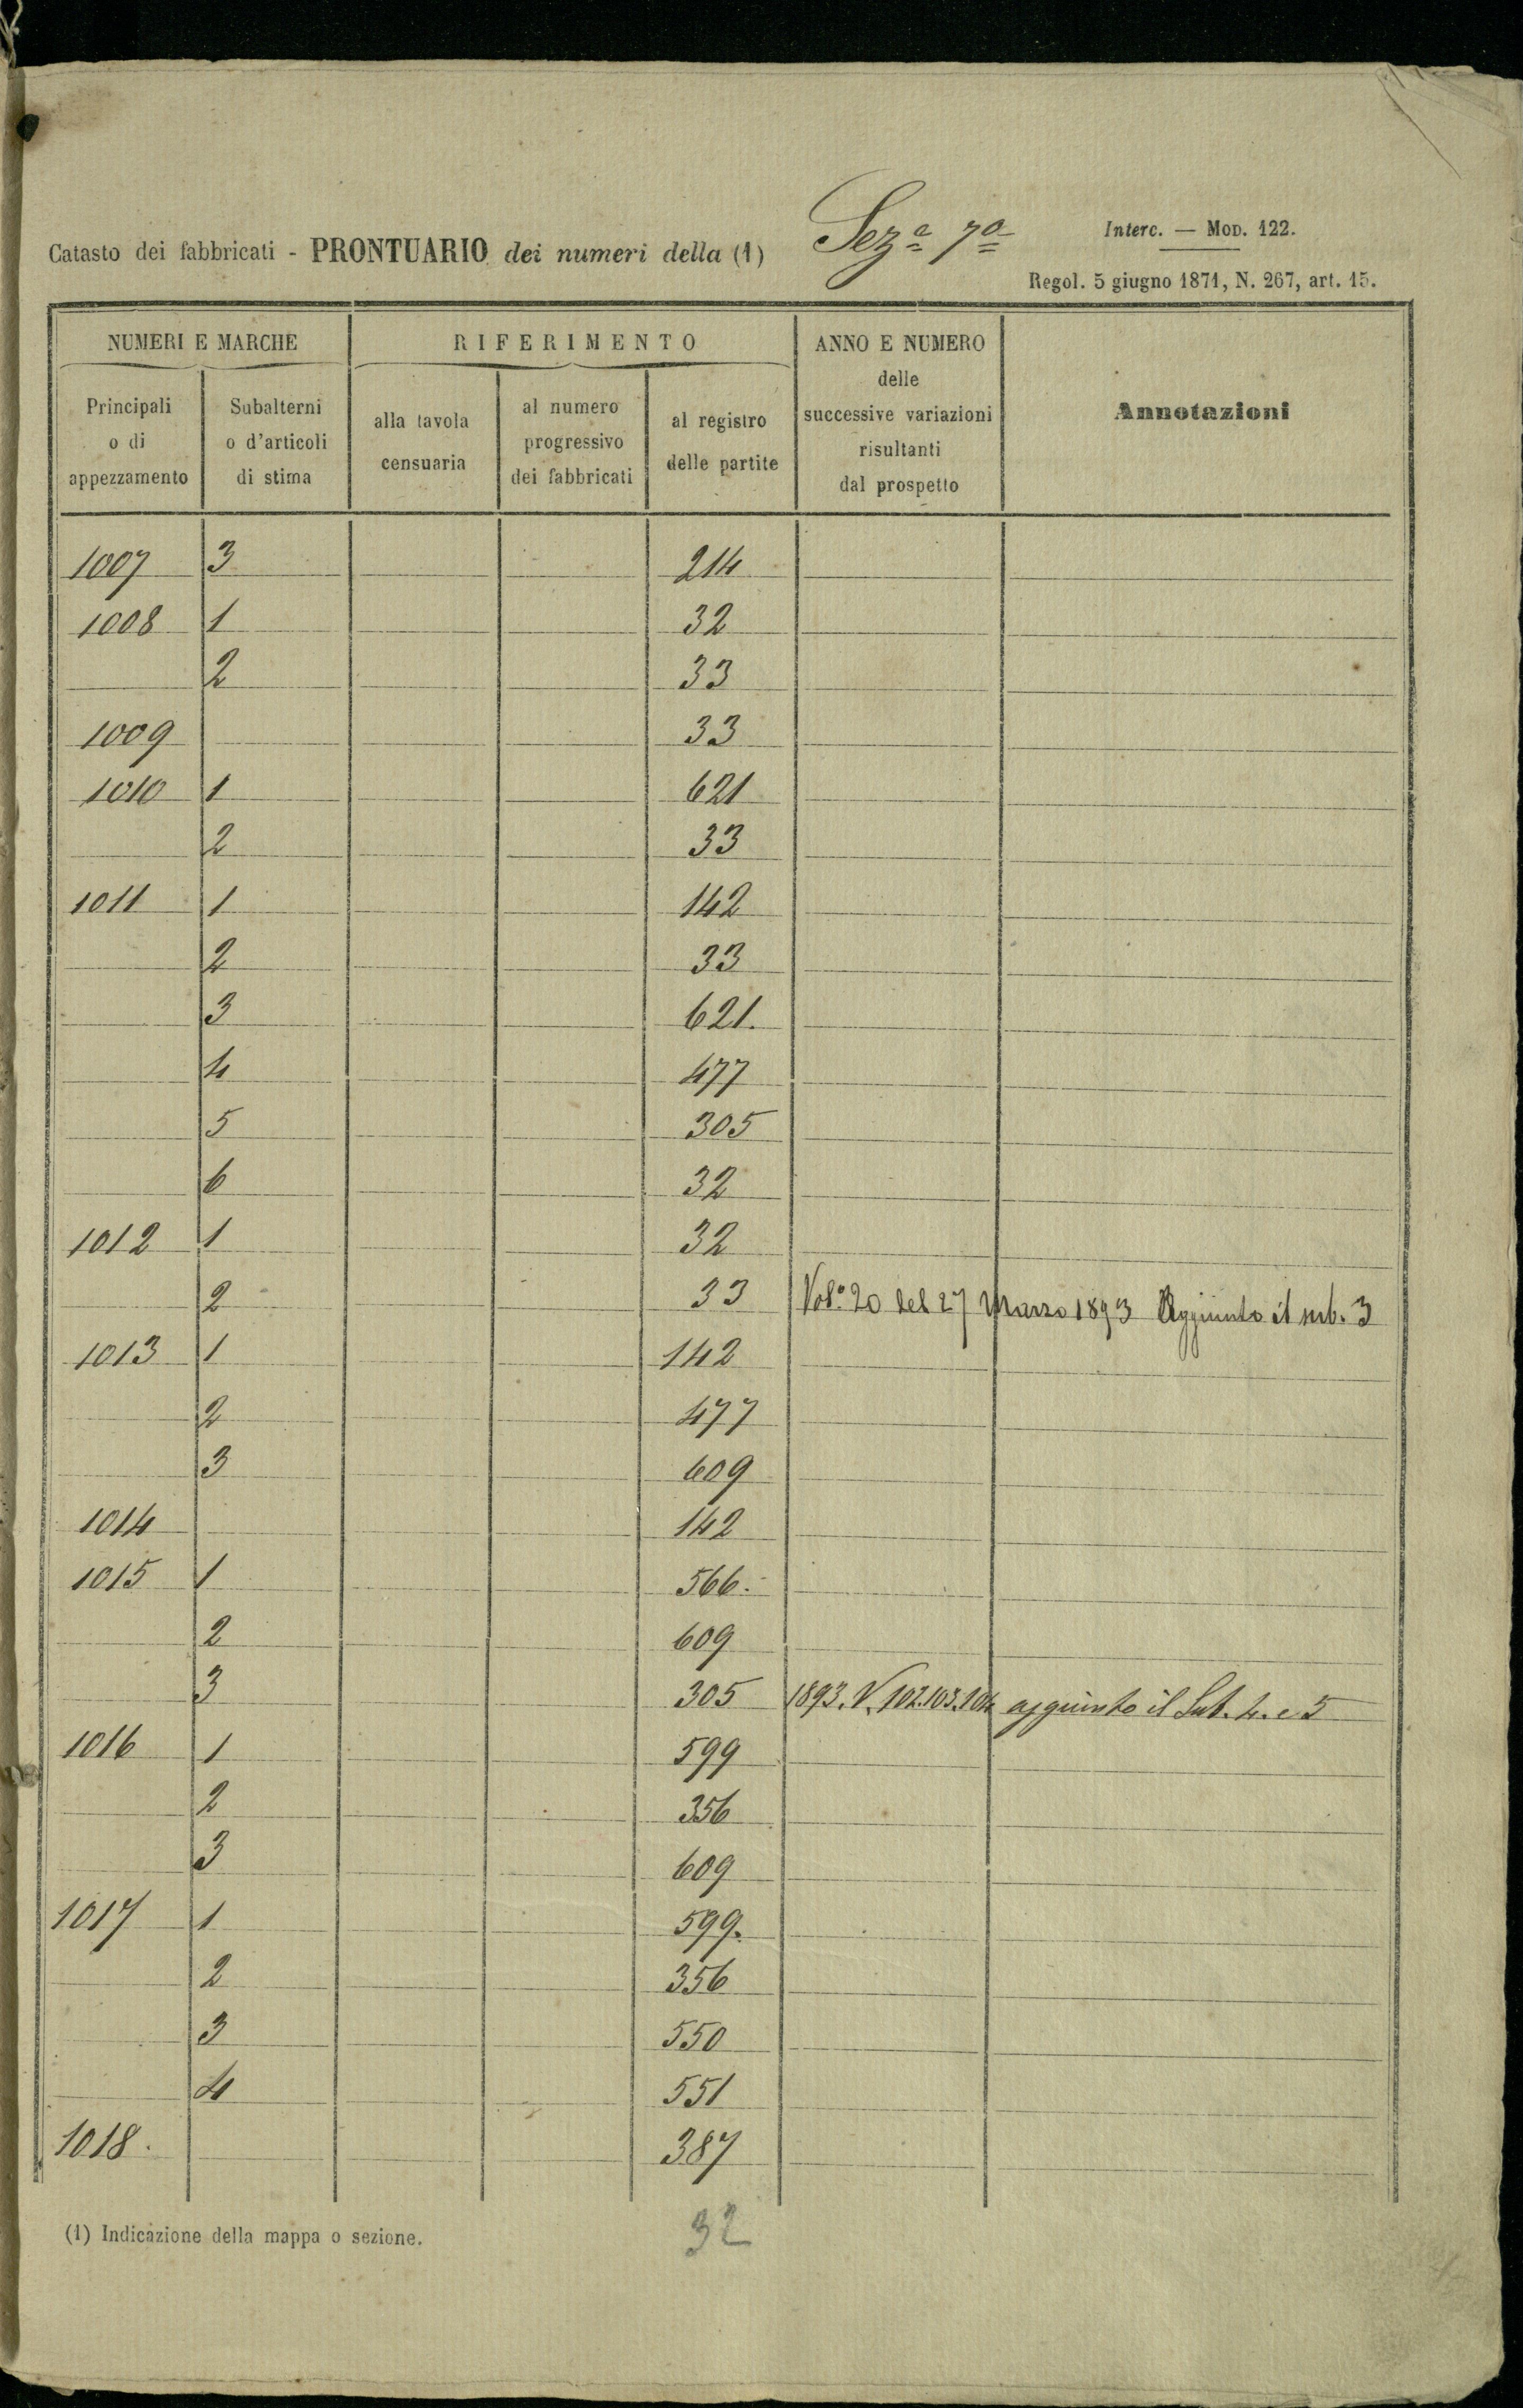 Catasto dei fabbricati - PRONTUARIO dei numeri della (1) Sez.a 7a
Interc. — Mod. 122.
Regol. 5 giugno 1871, N. 267, art. 15.
NUMERI E MARCHE
RIFERIMENTO
ANNO E NUMERO
delle
successive variazioni
risultanti
dal prospetto
Annotazioni
Principali
o di
appezzamento
Subalterni
o d'articoli
di stima
alla tavola
censuaria
al numero
progressivo
dei fabbricati
al registro
delle partite
1007 3 214
1008 1 32
2 33
1009 33
1010 1 621
2 33
1011 1 142
2 33
3 621.
4 477
5 305
6 32
1012 1 32
2 33 Vol.e 20 del 27 Marzo 1893 Aggiunto il sub. 3
1013 1 142
2 477
3 609
1014 142
1015 1 566.
2 609
3 305 1893. V. 102.103.104 aggiunto il Sub. 4. e 5
1016 1 599
2 356
3 609
1017 1 599.
2 356
3 550
4 551
1018. 387
(1) Indicazione della mappa o sezione.
32